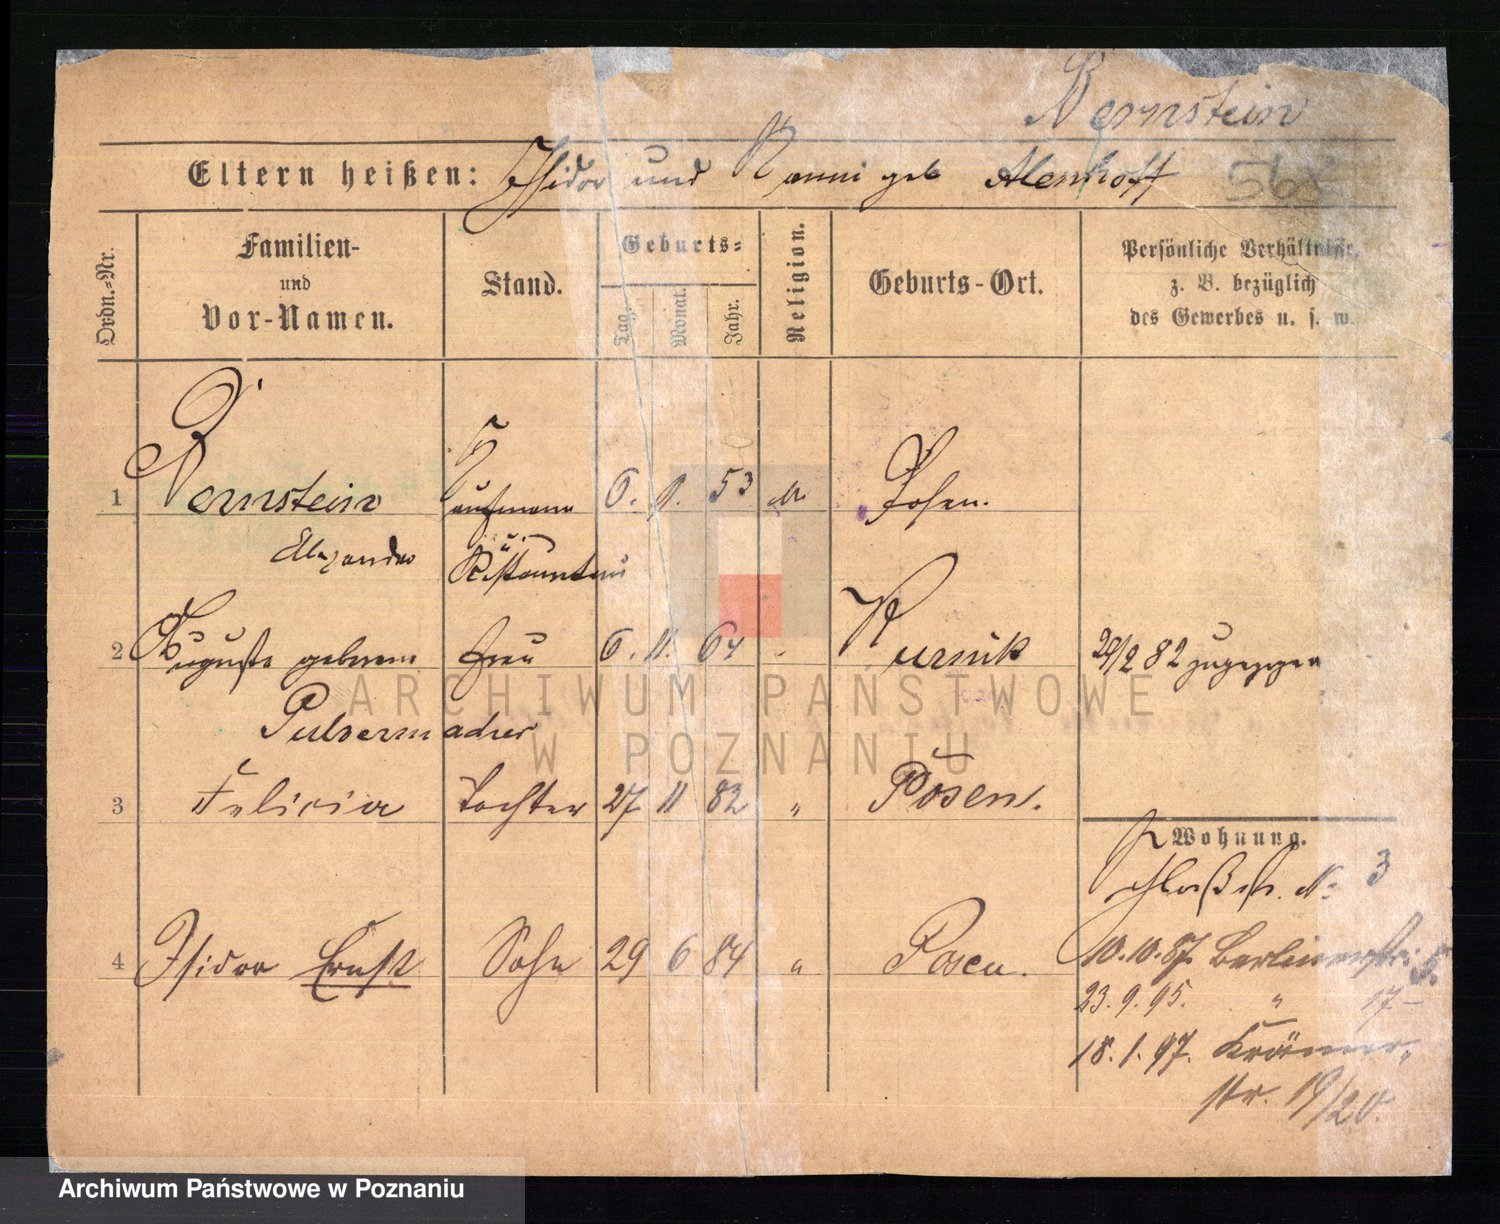 Bernstein
Eltern heißen: Isidor und Nanni geb
Ordn.-Nr.
Familien- und Vor-Namen.
Stand.
Geburts-
Tag. Monat. Jahr.
Religion.
Geburts-Ort.
Persönliche Verhältnisse,
z. B. bezüglich
des Gewerbes u. s. w.
1 Bernstein Kaufmann 6. 9. 53 Posen.
Alexander u. Restaurateur
2 Auguste geborene Frau 6. 11. 64 Kurnik 29/2 82 zugezogen
Pulvermacher
3 Felicia Tochter 27 11 82 " Posen.
Wohnung.
Schloßstr. No. 3
4 Isidor Ernst Sohn 29 6 84 " Posen.
10.10.87. Berlinerstr. 5.
23.9.95. " 17
18.1.97. Krämer-
str. 19/20.
ARCHIWUM PAŃSTWOWE
W POZNANIU
Archiwum Państwowe w Poznaniu